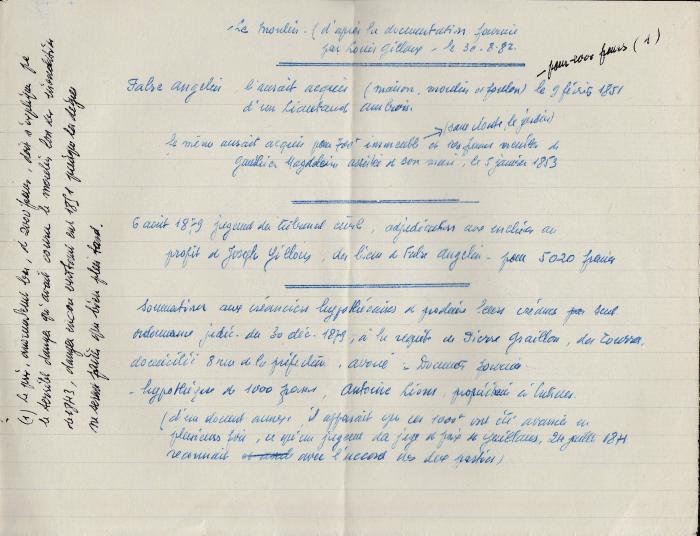 - Le Moulin - (d'après la documentation fournie
par Louis Gilloux - le 30-8-82.
- pour 2000 francs (1)
Fabre Angelin, l'aurait acquis (maison, moulin et foulon) le 9 février 1851
d'un Lieutaud Ambroise.
(sans doute, le jardin)
le même aurait acquis pour 700f immeuble et ses fonds meubles de
Magdeleine assistée de son mari, le 5 janvier 1853
6 août 1879 jugement du tribunal civil, adjudication aux enchères au
profit de Joseph Gilloux, des biens de Fabre Angelin - pour 5020 francs
Sommations aux créanciers hypothécaires de produire leurs créances par
ordonnance judic. du 30 déc. 1879, à la requête de Pierre Graillon,
domicilié 8 rue de la préfecture, avoué -
- hypothèque de 1000 francs, Antoine Lions, propriétaire à
(d'un document annexe il apparait que ces 1000f ont été avancés en
plusieurs fois, ce qu'un jugement du juge de paix de Guillaumes, 24 juillet 1871
reconnait avec l'accord des deux parties)
(1) Le prix anormalement bas, de 2000 francs, doit s'expliquer par
le terrible danger qu'avait couru le moulin lors des inondations
de 1843, danger encore existant en 1851 puisque la digue
ne serait faite que bien plus tard.